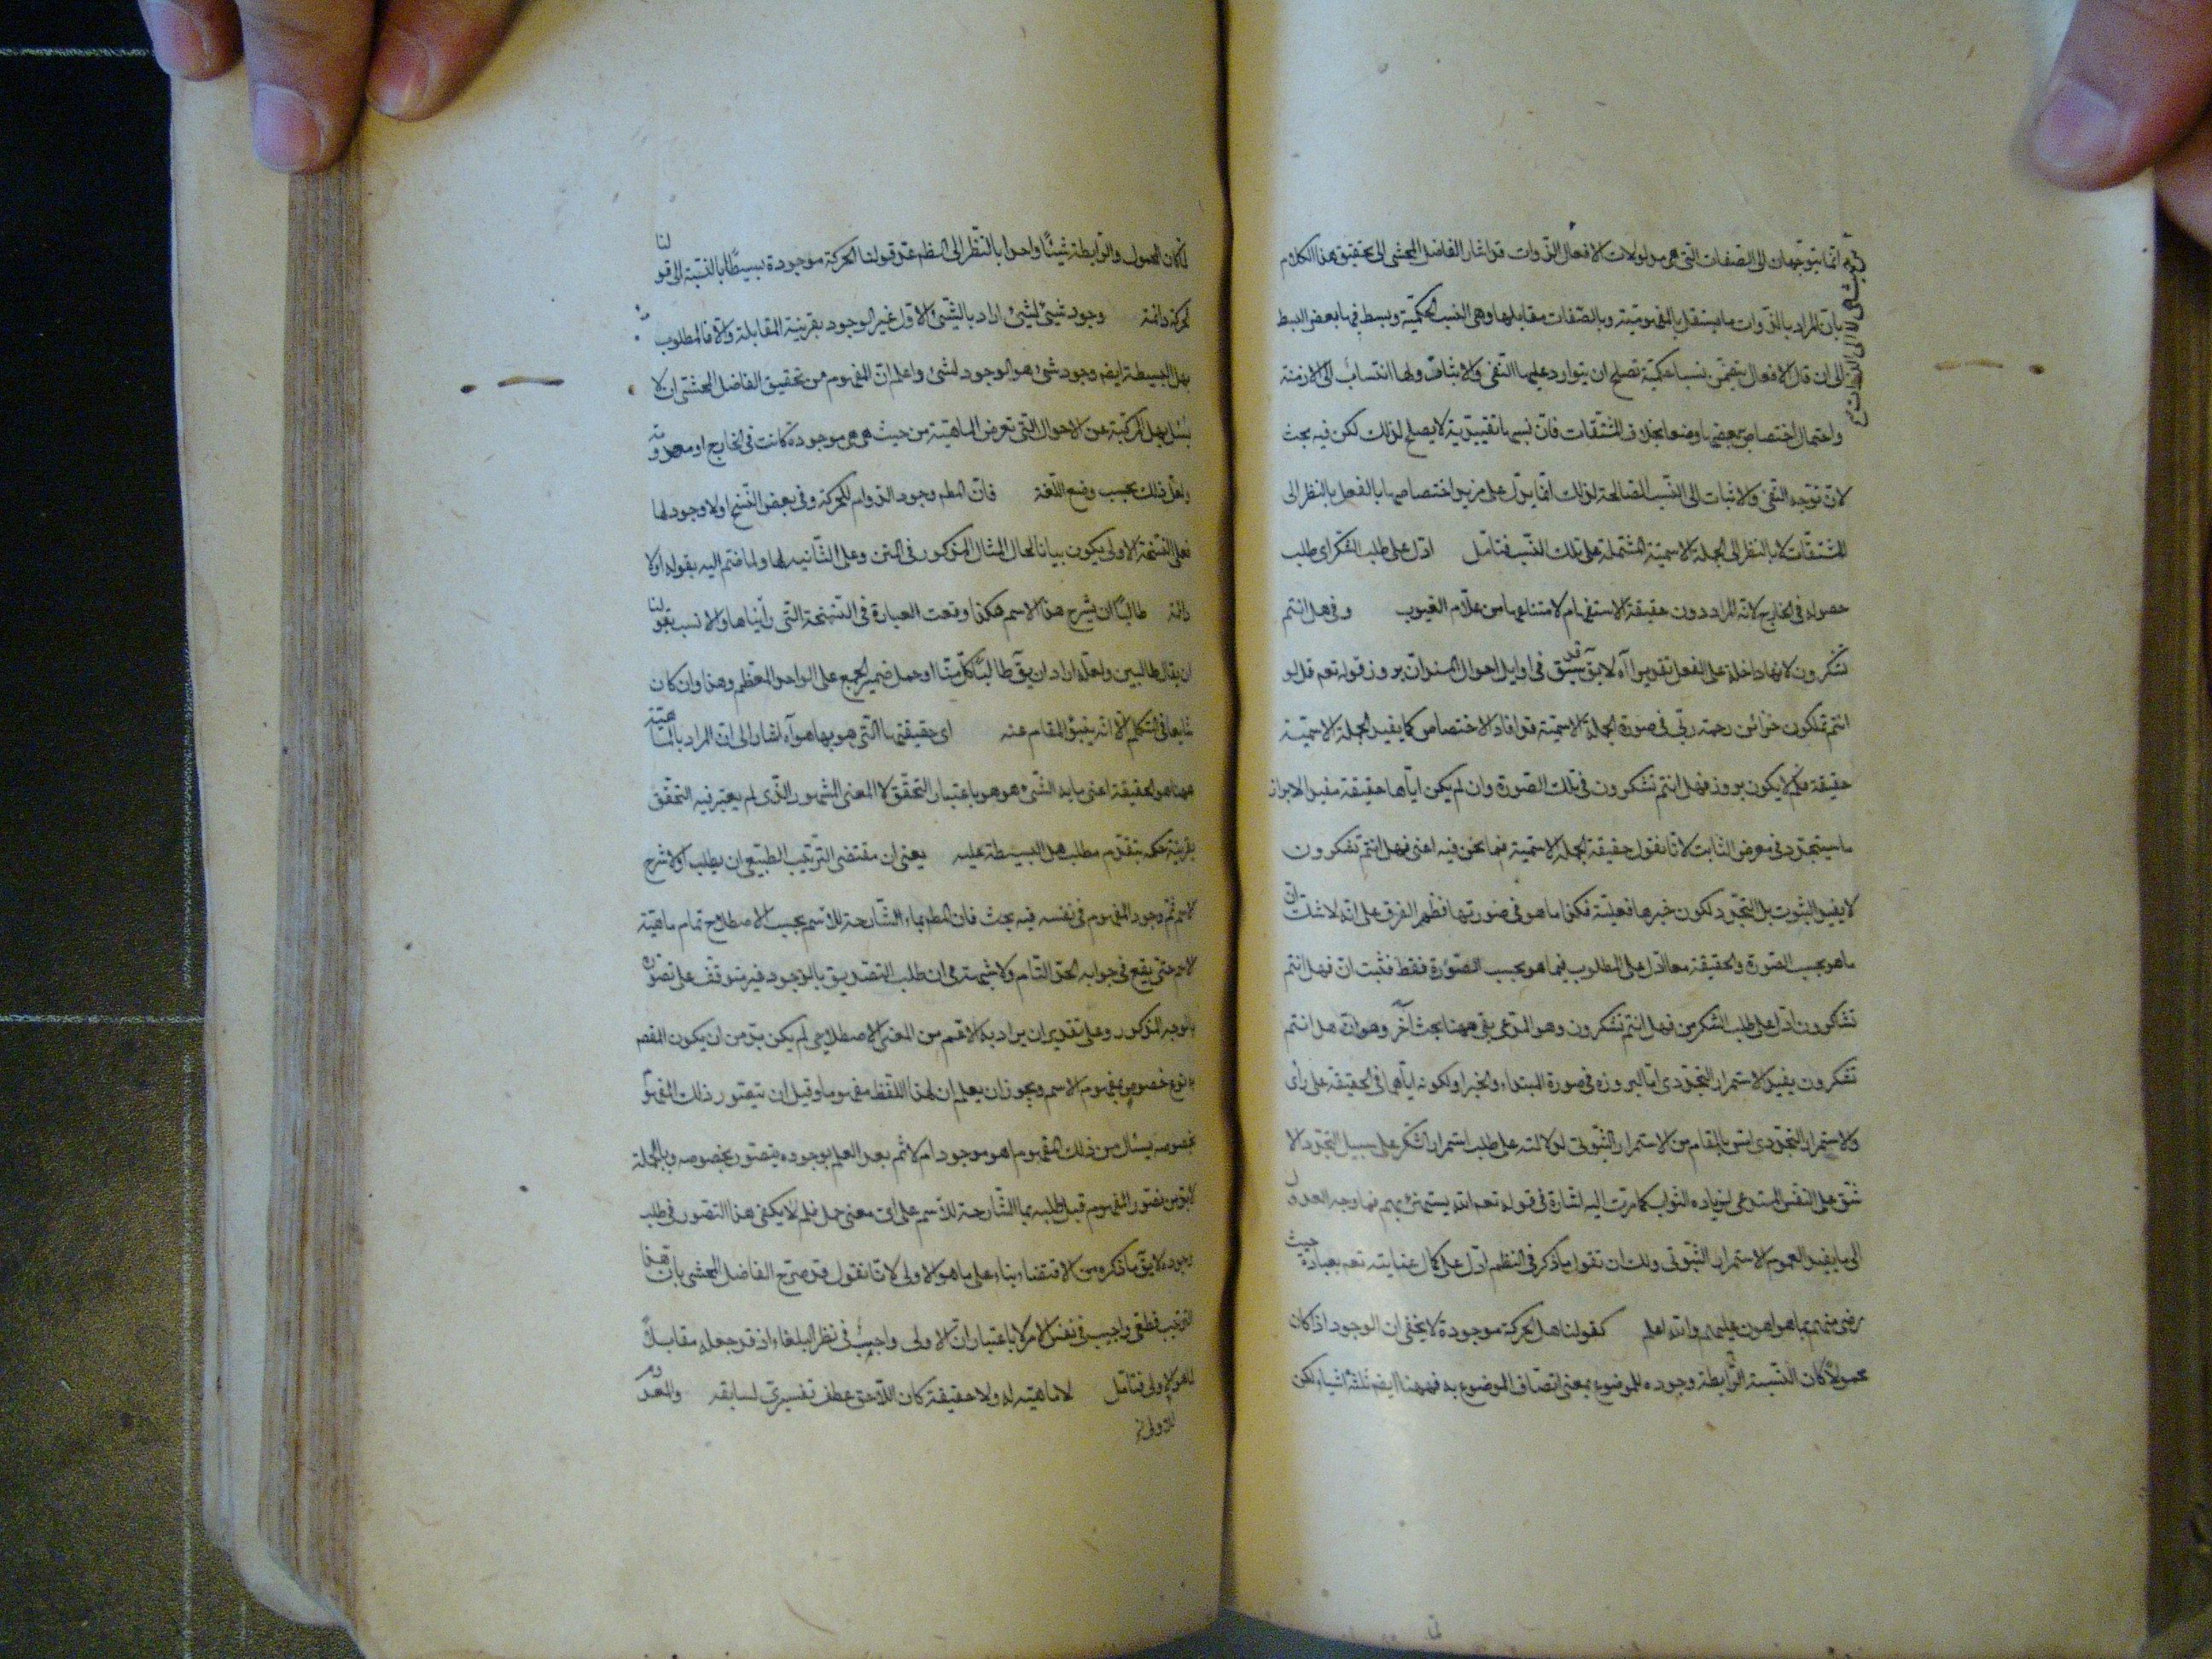 انما يتوجهان الى الصفات التى هى مدلولات الافعال لا الذوات قد اشار الفاضل المحشى الى تحقيق هذا الكلام
بان المراد بالذوات ما يستقل بالمفهومية وبالصفات مقابلها وهى النسب الحكمية وبسط فيها بعض البسط
الى ان قال الافعال يتضمن نسبا حكمية تصلح ان يتوارد عليها النفى والاثبات ولها انتساب الى الازمنة
واحتمال اختصاص ببعضها وضعا بخلاف المشتقات فان نسبها تقييدية لا يصلح لذلك لكن فيه بحث
لان توجه النفى والاثبات الى النسب الصالحة لذلك انما يدل على مزيد اختصاصها بالفعل بالنظر الى
المشتقات لا بالنظر الى الجملة الاسمية المشتملة على تلك النسب فتامل ادل على طلب الشكر اى طلب
حصوله فى الخارج لانه المراد دون حقيقة الاستفهام لامتناعها من علام الغيوب وفى هل انتم
تشكرون لانها داخلة على الفعل تقديرا آه لا يق قد سبق فى اوايل احوال المسند ان بروز قوله تعم قل لو
انتم تملكون خزائن رحمة ربى فى صورة الجملة الاسمية قد افاد الاختصاص كما يفيد الجملة الاسمية
حقيقة فلم لا يكون بروز فهل انتم تشكرون فى تلك الصورة وان لم يكن اياها حقيقة مفيد الابراز
ما سيتجدد فى معرض الثابت لانا نقول حقيقة الجملة الاسمية فيما نحن فيه اعنى فهل انتم تشكرون
لا يفيد الثبوت بل التجدد لكون خبرها فعلية فكذا ما هو فى صورتها فظهر الفرق على انه لا شك ان
ما هو بحسب الصورة والحقيقة معا ادل على المطلوب فيما هو بحسب الصورة فقط فثبت ان فهل انتم
شاكرون ادل على طلب الشكر من فهل انتم تشكرون وهو المدعى بقى ههنا بحث آخر وهو ان هل انتم
تشكرون يفيد الاستمرار التجددى اما لبروزه فى صورة المبتداء والخبر او لكونه اياهما فى الحقيقة على رأى
والاستمرار التجددى انسب بالمقام من الاستمرار الثبوتى لدلالته على طلب استمرار الشكر على سبيل التجدد الا
شق على النفس المستدعى لزياده الثواب كما مرت اليه اشارة فى قوله تعم الله يستهزئ بهم فما وجه العدول
الى ما يفيد العموم الاستمرار الثبوتى ولك ان تقول ما ذكر فى النظم ادل على كمال عنايته تعم بعباده حيث
رضى منهم بما هو اهون عليهم والله اعلم كقولنا هل الحركة موجودة لا يخفى ان الوجود اذا كان
محمولا كان النسبة الرابطة وجوده للموضوع بمعنى اتصاف الموضوع به فههنا ايضم ثلثة اشياء لكن
لما كان المحمول والرابطة شيئا واحدا بالنظر الى النظم عد قولنا الحركة موجودة بسيطا بالنسبة الى قولنا
الحركة دائمة وجود شيئ لشيئ اراد بالشيئ الاول غير الوجود بقرينة المقابلة والا فالمطلوب
بهل البسيطة ايضم وجود شئ هو الوجود لشئ واعلم ان المفهوم من تحقيق الفاضل المحشى ان لا
يسئل بهل المركبة عن الاحوال التى تعرض الماهية من حيث هى هى موجودة كانت فى الخارج او معدومة
ولعل ذلك بحسب وضع اللغة فان المطم وجود الدوام للحركة وفى بعض النسخ او لا وجود لها
فعلى النسخة الاولى يكون بيانا لحال المثال المذكور فى المتن وعلى الثانيه لها ولما ضم اليه بقوله او لا
دائمة طالبا ان يشرح هذا الاسم هكذا وقعت العبارة فى النسخة التى رأيناها والانسب بقولنا
ان يقال طالبين ولعله اراد ان يق طالبا كل منا او حمل ضمير الجمع على الواحد المعظم وهذا وان كان
شايعا فى المتكلم الا انه ينبؤ المقام عنه اى حقيقتها التى هو بها هو آه اشار الى ان المراد بالماهية
ههنا هو الحقيقة اعنى ما به الشئ هو هو باعتبار التحقق لا المعنى المشهور الذى لم يعتبر فيه التحقق
بقرينة حكمه بتقدم مطلب هل البسيطة عليه يعنى ان مقتضى الترتيب الطبيعى ان يطلب اولا شرح
الاسم ثم وجود المفهوم فى نفسه فيه بحث فان المطم بماء الشارحة للاسم بحسب الاصطلاح تمام ماهية
الاسم حتى يقع فى جوابه الحد التام ولا شبهة فى ان طلب التصديق بالوجود غير متوقف على تصوره
بالوجه المذكور وعلى تقدير ان يراد به الاعم من المعنى الاصطلاحى لم يكن بد من ان يكون المقصم
به نوع خصوص بمفهوم الاسم ويجوز ان يعلم ان لهذا اللفظ مفهوما وقبل ان يتصور ذلك المفهوم
بخصوصه يسئل من ذلك المفهوم اهو موجود ام لا ثم بعد العلم بوجوده يتصور بخصوصه وبالجملة
لابد من تصور المفهوم قبل طلبه بما الشارحة للاسم على اى معنى حمل فلم لا يكفى هذا التصور فى طلب
وجوده لا يق ما ذكره من الاقتضاء بناء على ما هو الاولى لانا نقول قد صرح الفاضل المحشى بان هذا
الترتيب قطعى واجب فى نفس الامر لا باعتبار ان الاولى واجب فى نظر البلغاء اذ قد جعله مقابلا
لما هو الاولى فتامل لا ماهية له ولا حقيقة كان اللاحق عطف تفسيرى لسابقه والمعدوم